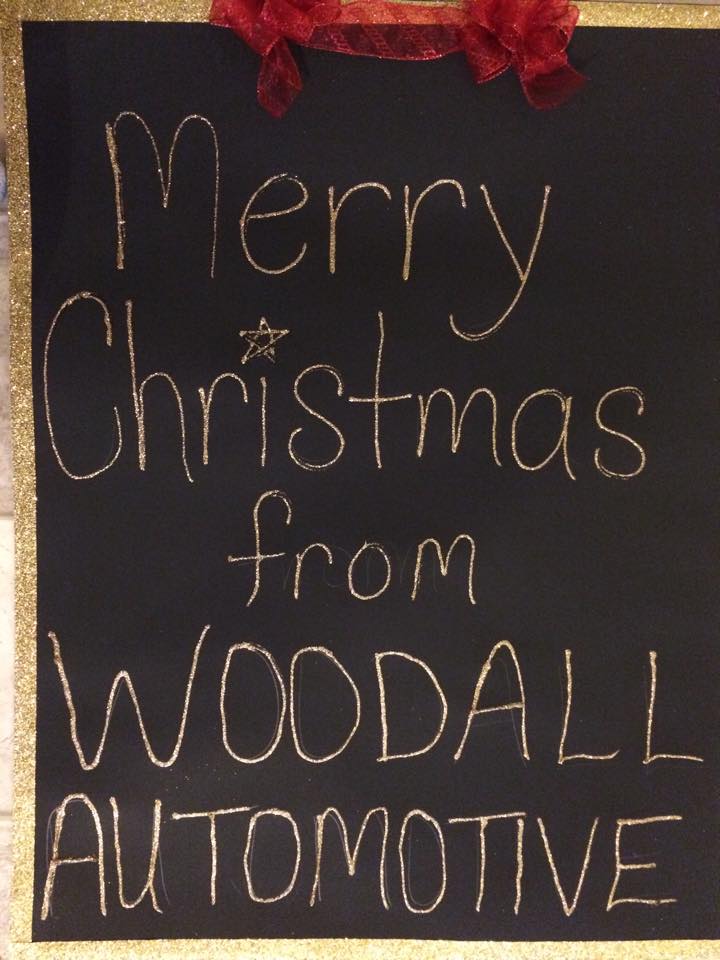 Merry
Christmas
from
WOODALL
AUTOMOTIVE